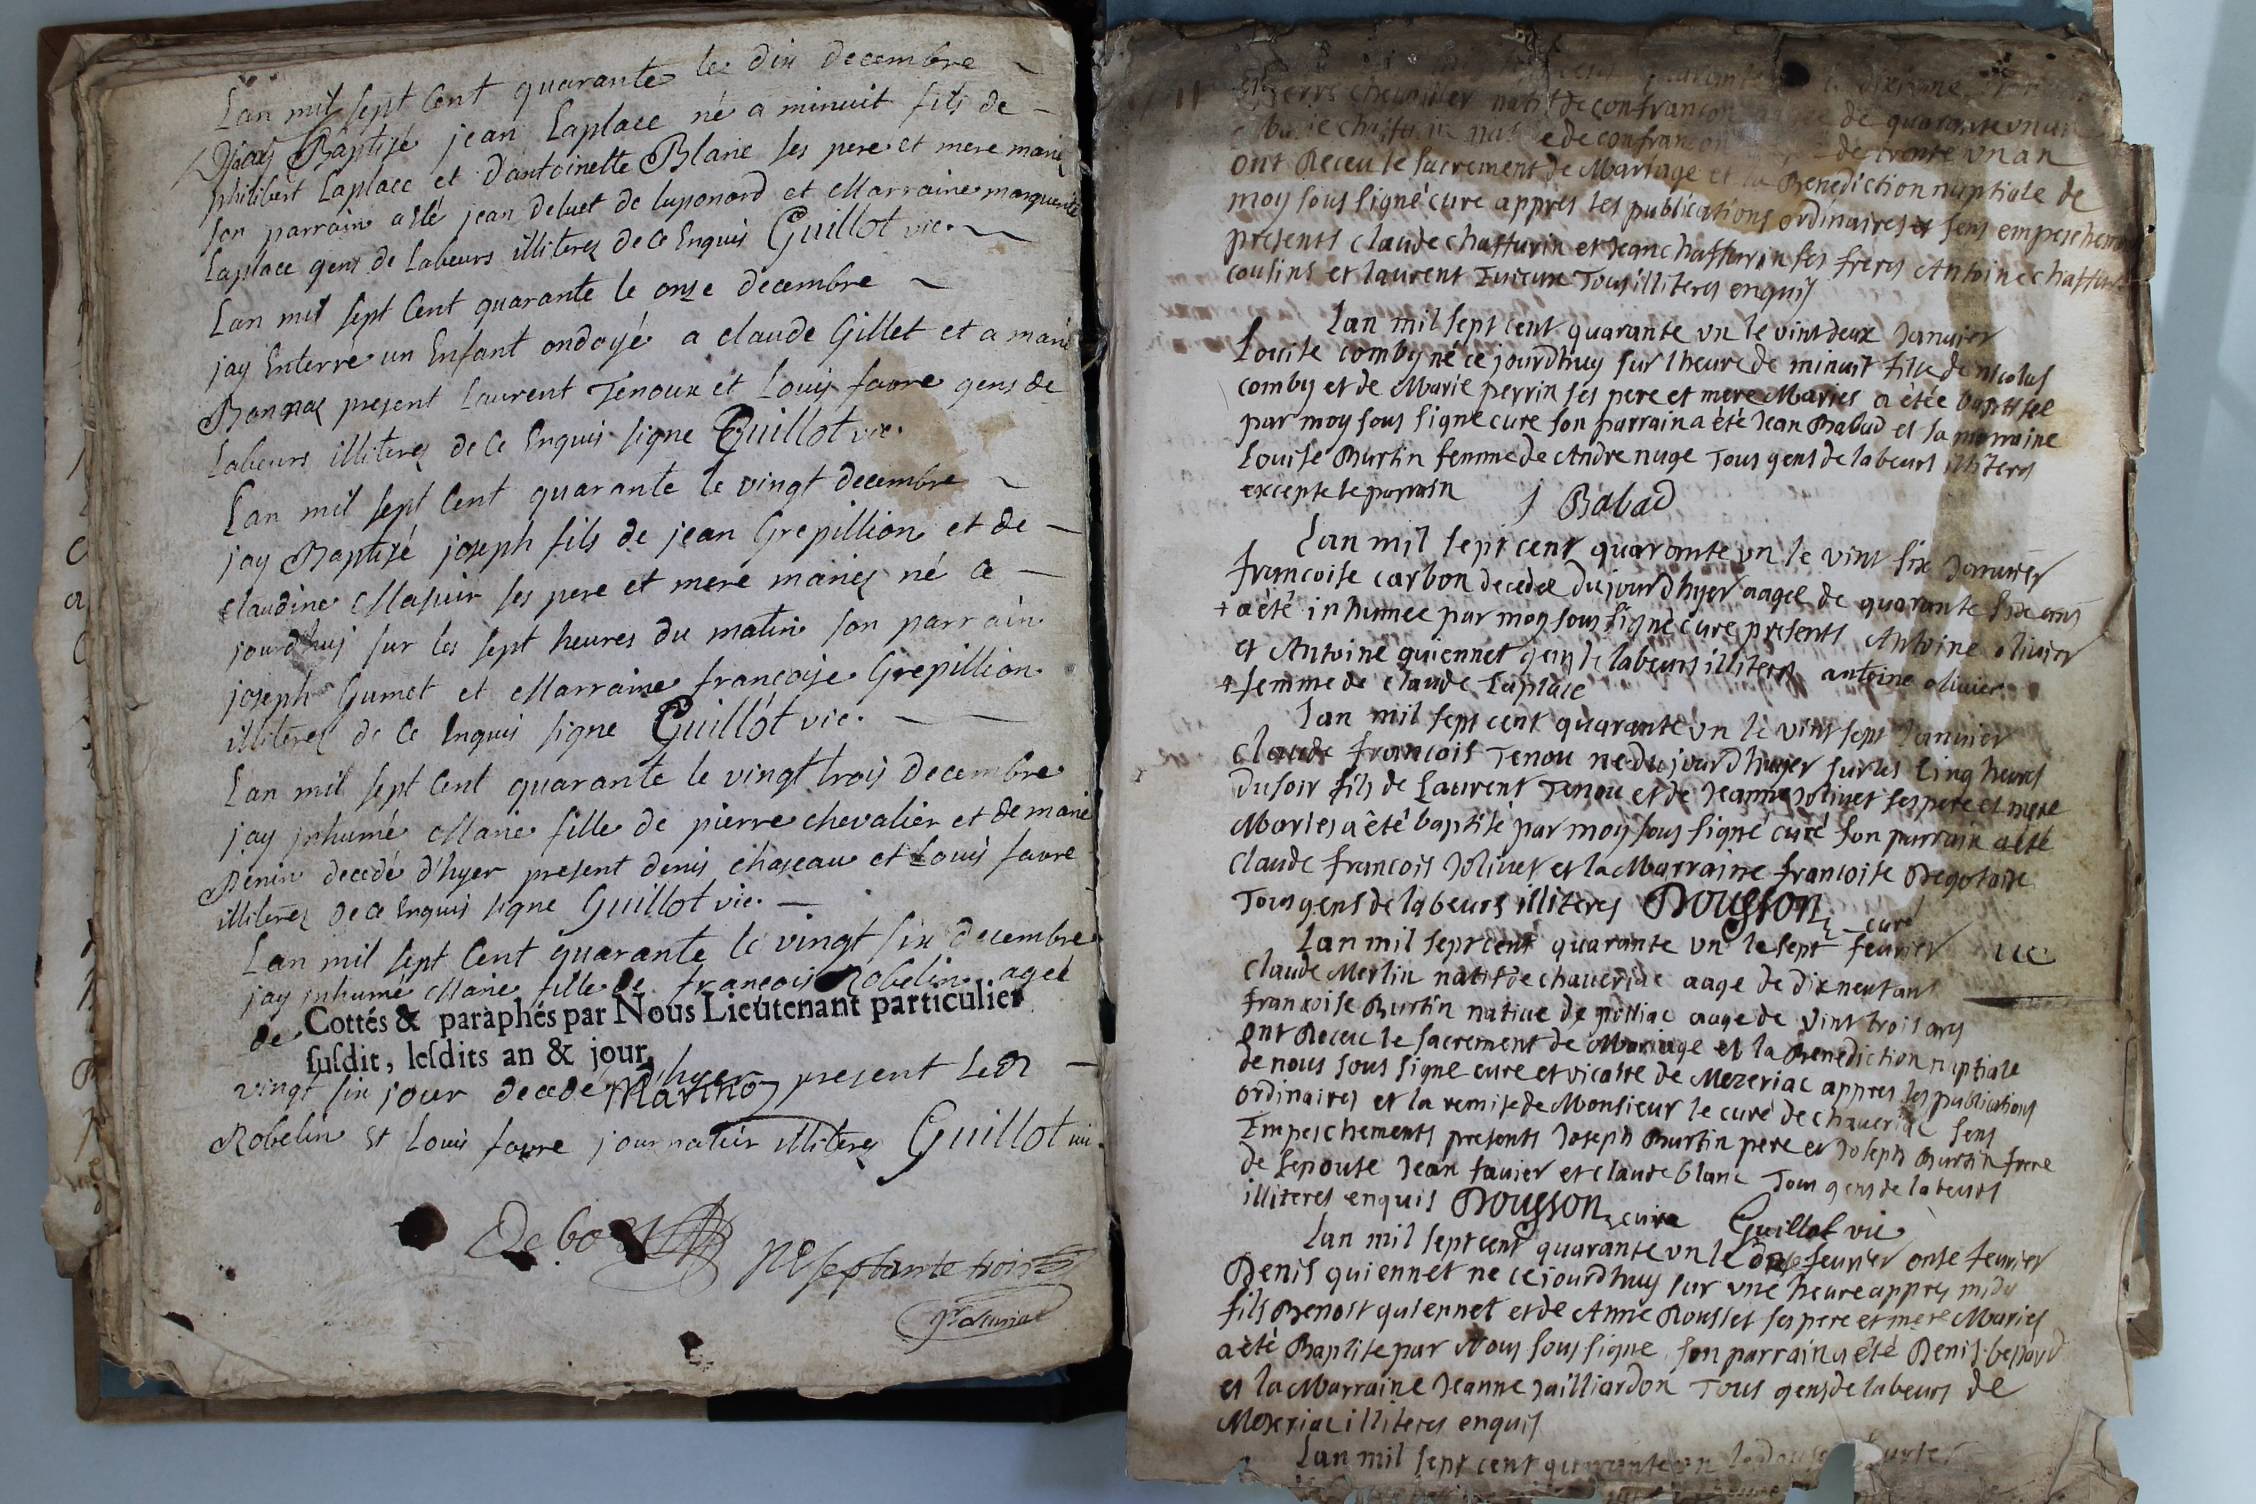 Lan mil sept Cent quarante le dix decembre
Jay Baptisé jean Laplace né a minuit fils de
philibert Laplace et Dantoinette Blanc ses pere et mere mariez
son parrain a été jean deluet de luponord et Marraine marguerite
Laplace gens de Labeurs illiterez de ce Enquis Guillot vic.
Lan mil sept Cent quarante le onze decembre
jay Enterré un Enfant ondoyé a claude Gillet et a marie
present Laurent Tenoux et Louis favre gens de
Labeurs illiterez de Ce Enquis signe Guillot vic.
Lan mil sept Cent quarante le vingt decembre
jay Baptizé joseph fils de jean Grepillion et de
claudine ses pere et mere mariez né ce
jourdhuy sur les sept heures du matin son parrain
joseph Gumet et Marraine françoise Grepillion
illiterez de Ce Enquis signe Guillot vic.
Lan mil sept Cent quarante le vingt trois decembre
jay jnhumé Marie fille de pierre chevalier et de marie
Benin decedé d'hyer present denis chaseau et Louis favre
illiterez de ce Enquis signe Guillot vic.
Lan mil sept Cent quarante le vingt six decembre
jay jnhumé Marie fille de francois Robelin ageé
de
Cottés & paraphés par Nous Lieutenant particulier
susdit, lesdits an & jour,
vingt six jour decedé d'hyer present
Robelin et Louis favre journalier illiterez Guillot vic.
septante trois
chevallier natif de confrançon de quarante un an
de confrançon de trente un an
ont Receu le sacrement de Mariage et la Benediction nuptiale de
moy sous signé curé appres les publications ordinaires et sens empeschement
presents claude chaffurin et Jean chaffurin ses freres Antoine chaffurin
cousins et laurent Tous illiteres enquis
Lan mil sept cent quarante un le vint deux Janvier
Louise comby né ce jourdhuy sur lheure de minuit fille de nicolas
comby et de Marie perrin ses pere et mere Maries a étée baptisee
par moy sous signé cure son parrain a été Jean Babad et la marraine
Louise Burtin femme de Andre nuge Tous gens de labeurs illiteres
excepte le parrain J Babad
Lan mil sept cent quarante un le vint six Janvier
francoise carbon decedee du jourdhyer aagee de quarante six ans
+ a été inhumee par moy sous signé cure presents Antoine olivier
et Antoine quiennet gens de labeurs illiteres antoine olivier
+ femme de claude Laplace
Lan mil sept cent quarante un le vint sept Janvier
claude francois Tenou ne du jourdhuyer sur les cinq heures
du soir fils de Laurent Tenou et de Jeanne Jolivet ses pere et mere
Maries a été baptisé par moy sous signé curé son parrain a été
claude francois Jolivet et la Marraine francoise
Tous gens de labeurs illiteres Bouysson curé
Lan mil sept cent quarante un le sept fevrier
claude Merlin natif de chaveriac aage de dix neuf ans
francoise Burtin native de polliac aage de vint trois ans
ont Receu le sacrement de Mariage et la Benediction nuptiale
de nous sous signe cure et vicaire de Mezeriac appres les publications
ordinaires et la remise de Monsieur le curé de chaveriac sens
Empeschements presents Joseph Burtin pere et Joseph Burtin frere
de lepouse Jean favier et claude blanc Tous gens de labeurs
illiteres enquis Bouysson cure Guillot vic
Lan mil sept cent quarante un le fevrier onse fevrier
Denis quiennet ne ce jourdhuy sur une heure appres midy
fils Benoist quiennet et de Anne Rousset ses pere et mere Maries
a été Baptise par Nous sous signe son parrain a été Denis
et la Marraine Jeanne Jailliardon Tous gens de labeurs de
Mezeriac illiteres enquis
Lan mil sept cent quarante un